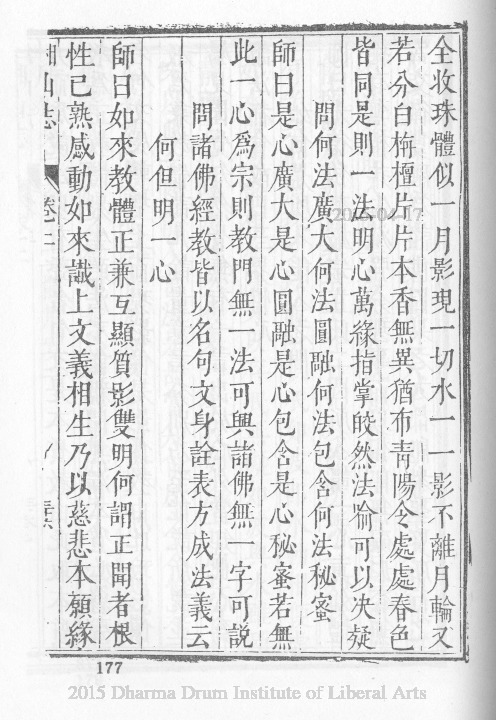 全收珠體似一月影現一切水一一影不離月輪又
若分白栴檀片片本香無異猶布靑陽令處處春色
皆同是則一法明心萬緣指掌皎然法喻可以決疑
問何法廣大何法圓融何法包含何法秘蜜
師曰是心廣大是心圓融是心包含是心秘蜜若無
此一心爲宗則教門無一法可興諸佛無一字可說
問諸佛經教皆以名句文身詮表方成法義云
何但明一心
師曰如來教體正兼互顯質影雙明何謂正聞者根
性已熟感動如來識上文義相生乃以慈悲本願緣
山志 卷二
177
2015-04-17
2015 Dharma Drum Institute of Liberal Arts